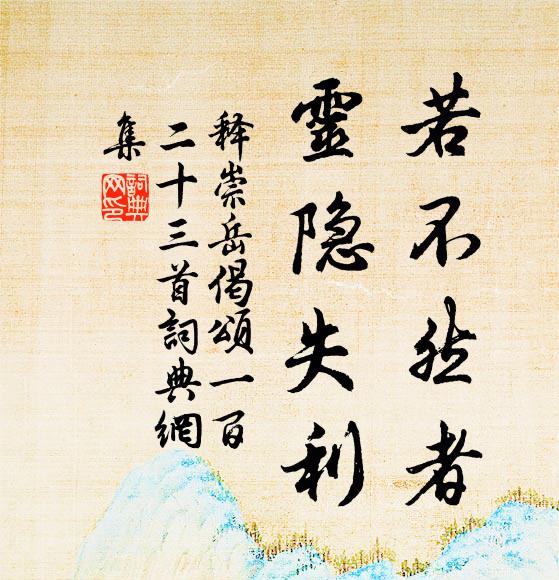 若不然者
靈隐失利
释崇岳偈頌一百
二十三首詞典網
集
詞典
网印